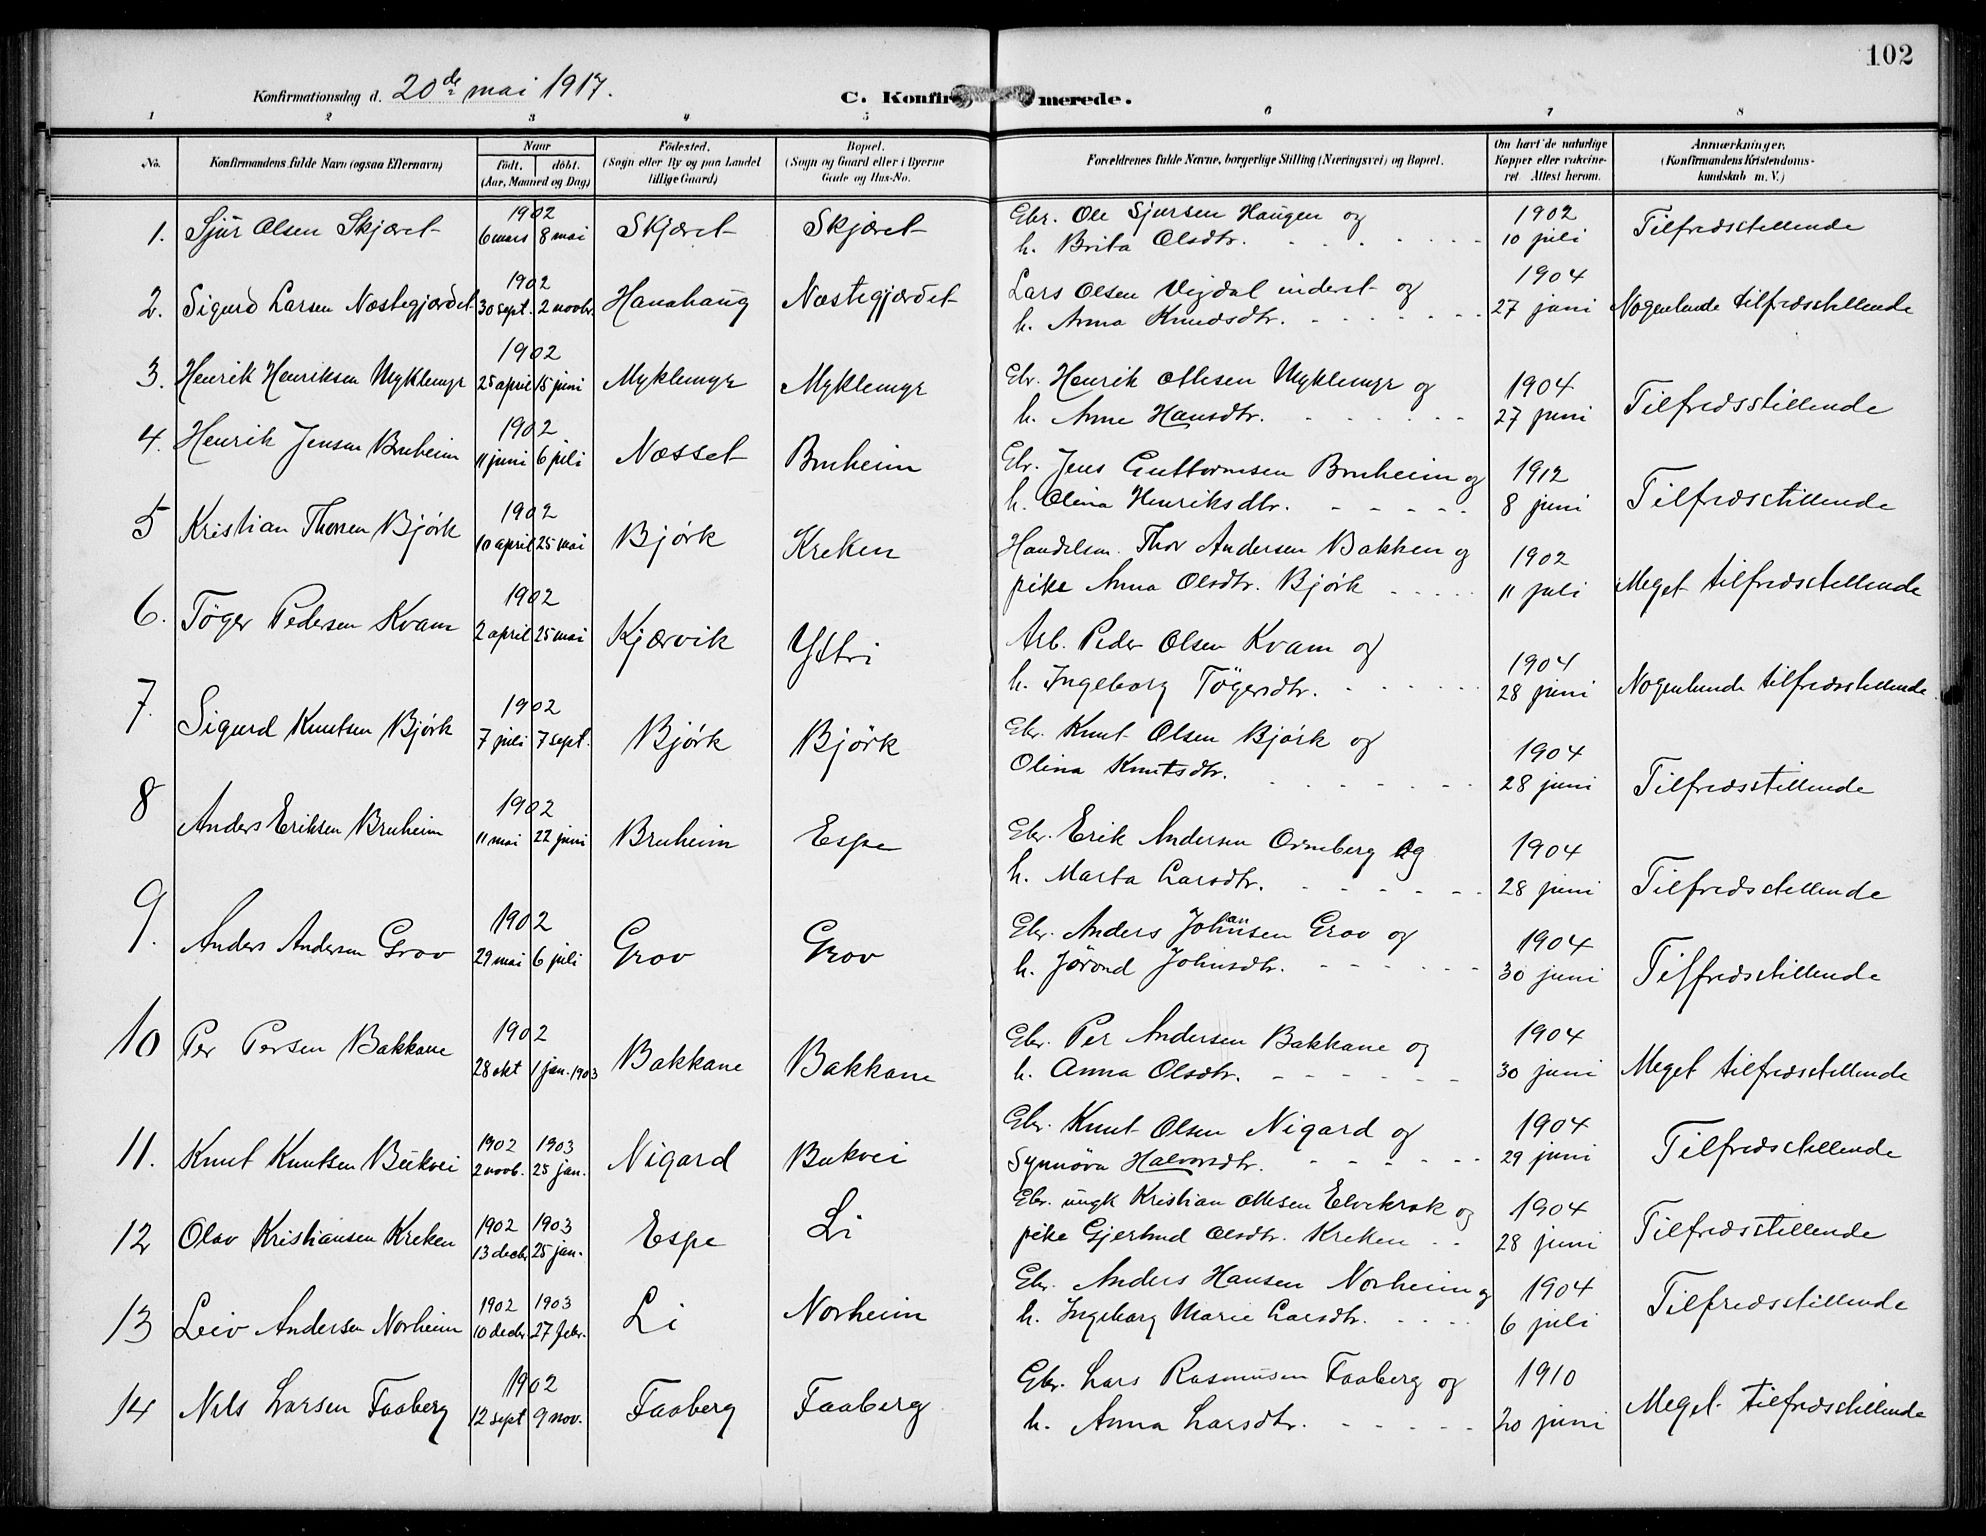 102
Konfirmationsdag d. 20de mai 1917.
C. Konfirmerede.
1 2 3 4 5 6 7 8
No. Konfirmandens fulde Navn (ogsaa Efternavn)
Naar født. døbt. (Aar, Maaned og Dag)
Fødested. (Sogn eller By og paa Landet tillige Gaard)
Bopæl. (Sogn og Gaard eller i Byerne Gade og Hus-No.
Forældrenes fulde Navne, borgerlige Stilling (Næringsvei) og Bopæl.
Om havt de naturlige Kopper eller vakcineret. Attest herom.
Anmærkninger, (Konfirmandens Kristendomskundskab m. V.)
1. Sjur Olsen Skjæret 1902 6 mars 8 mai Skjæret Skjæret Gbr. Ole Sjursen Haugen og
h. Brita Olsdtr. 1902 10 juli Tilfredsstillende
2. Sigurd Larsen Næstegjærdet 1902 30 sept. 2 novbr. Hanahaug Næstegjærdet Lars Olsen Vigdal inderst og
h. Anna Knudsdtr. 1904 27 juni Nogenlunde tilfredsstillende
3. Henrik Henriksen Myklemyr 1902 25 april 15 juni Myklemyr Myklemyr Gbr. Henrik Ottesen Myklemyr og
h. Anne Hansdtr. 1904 27 juni Tilfredsstillende
4. Henrik Jensen Bruheim 1902 11 juni 6 juli Næsset Bruheim Gbr. Jens Guttormsen Bruheim og
h. Olina Henriksdtr. 1912 8 juni Tilfredsstillende
5 Kristian Thorsen Bjørk 1902 10 april 25 mai Bjørk Kreken Handelsm. Thor Andersen Bakken og
pike Anna Olsdtr. Bjørk 1902 11 juli Meget tilfredsstillende
6. Tøger Pedersen Kvam 1902 2 april 25 mai Kjærvik Ytri Arb. Peder Olsen Kvam og
h. Ingeborg Tøgersdtr. 1904 28 juni Nogenlunde tilfredsstillende
7. Sigurd Knutsen Bjørk 1902 7 juli 7 sept. Bjørk Bjørk Gbr. Knut Olsen Bjørk og
Olina Knutsdtr. 1904 28 juni Tilfredsstillende
8 Anders Eriksen Bruheim 1902 11 mai 22 juni Bruheim Espe Gbr. Erik Andersen Ormberg og
h. Marta Larsdtr. 1904 28 juni Tilfredsstillende
9. Anders Andersen Grov 1902 29 mai 6 juli Grov Grov Gbr. Anders Johansen Grov og
h. Jørond Johnsdtr. 1904 30 juni Tilfredsstillende
10 Per Persen Bakkane 1902 28 okt 1 jan. 1903 Bakkane Bakkane Gbr. Per Andersen Bakkane og
h. Anna Olsdtr. 1904 30 juni Meget tilfredsstillende
11. Knut Knutsen Bukvei 1902 2 novb. 1903 25 jan. Nigard Bukvei Gbr. Knut Olsen Nigard og
Synnøva Halvorsdtr. 1904 29 juni Tilfredsstillende
12 Olav Kristiansen Kreken 1902 13 decbr 1903 25 jan. Espe Li Gbr. ungk Kristian Ottesen Elvekrok og
pike Gjertrud Olsdtr. Kreken 1904 28 juni Tilfredsstillende
13 Leiv Andersen Norheim 1902 10 decbr 1903 27 febr. Li Norheim Gbr. Anders Hansen Norheim og
h. Ingeborg Marie Larsdtr. 1904 6 juli Tilfredsstillende
14 Nils Larsen Faaberg 1902 12 sept 9 nov. Faaberg Faaberg Gbr. Lars Rasmussen Faaberg og
h. Anna Larsdtr. 1910 20 juni Meget tilfredsstillende